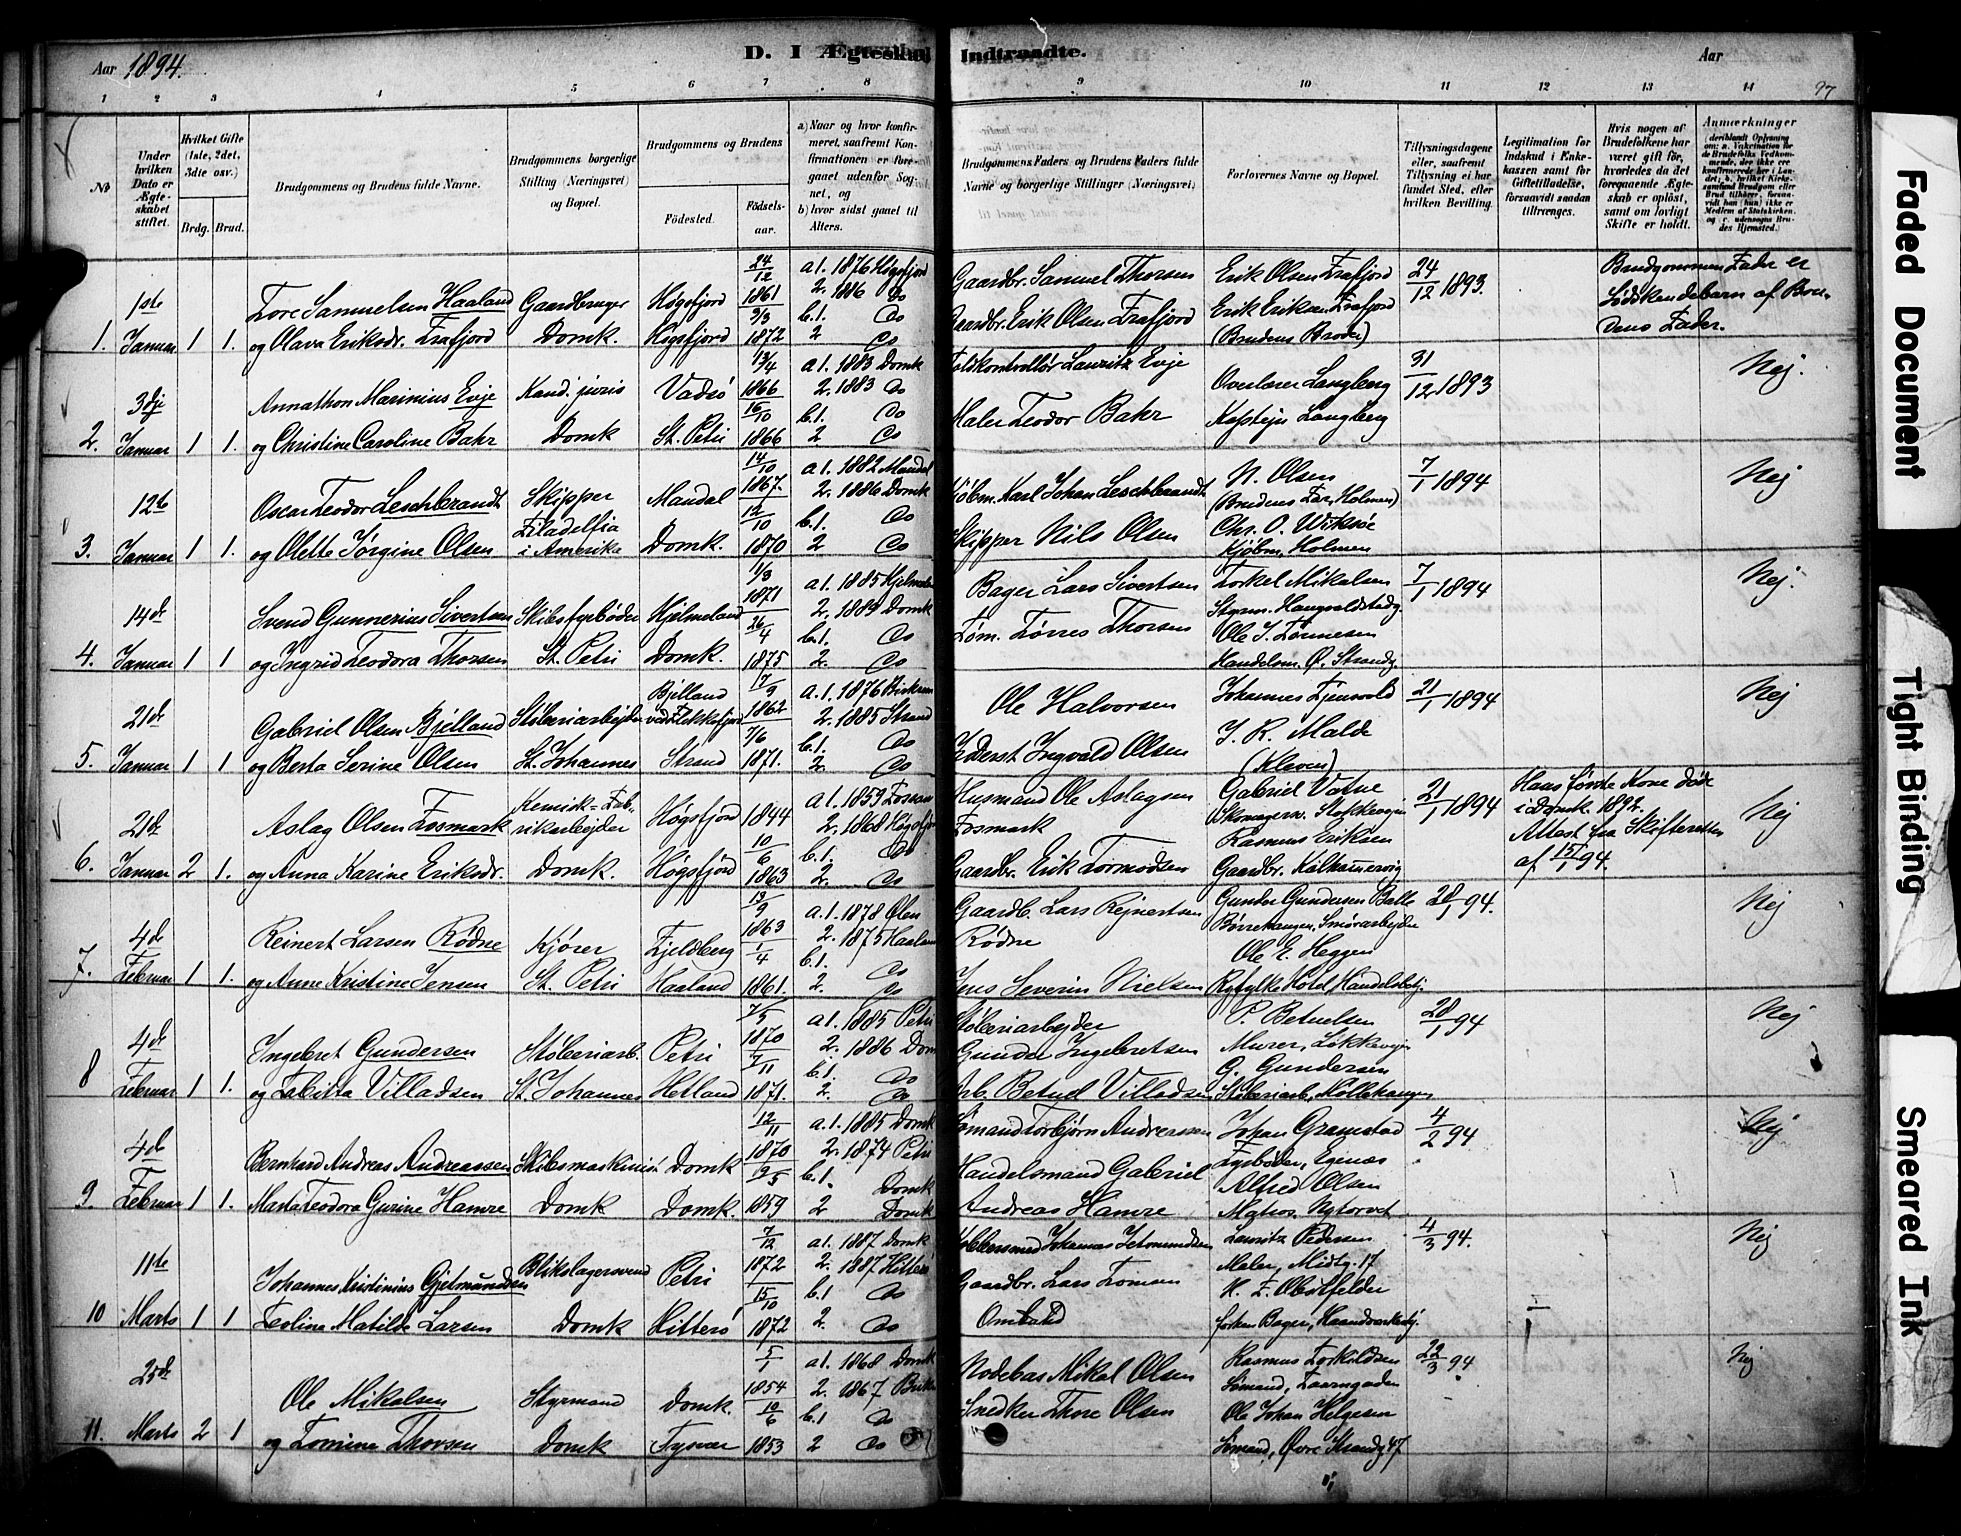 Aar 1894.
D. I Ægteskab Indtraadte.
Aar
97
1 2 3 4 5 6 7 8 9 10 11 12 13 14
No
Under hvilken Dato er Ægteskabet stiftet.
Hvilket Gifte (1ste, 2det, 3die osv.)
Brdg. Brud.
Brudgommens og Brudens fulde Navne.
Brudgommens borgerlige Stilling (Næringsvei) og Bopæl.
Brudgommens og Brudens
Födested.
Födselsaar.
a) Naar og hvor konfirmeret, saafremt Konfirmationen er foregaaet udenfor Sognet, og
b) hvor sidst gaaet til Alters.
Brudgommens Faders og Brudens Faders fulde Navne og borgerlige Stillinger (Næringsvei)
Forlovernes Navne og Bopæl.
Tillysningsdagene eller, saafremt Tillysning ei har fundet Sted, efter hvilken Bevilling.
Legitimation for Indskud i Enkekassen samt for Giftetilladelse, forsaavidt saadan tiltrænges.
Hvis nogen af Brudefolkene har været gift för, hvorledes da det foregaaende Ægteskab er oplöst, samt om lovligt Skifte er holdt.
Anmærkninger
1. 1ste Januar 1 1. Tore Samuelsen Haaland Gaardbruger Høgsfjord 24/12 1861 a 1. 1876 Høgsfjord
og Olava Eriksdr. Frafjord Domk. Høgsfjord 9/3 1872 2. 1886 Do b.1. Do 2 Do
Gaardbr. Samuel Thorsen Erik Olsen Frafjord 24/12 1893. Brudgommens Fader er
Gaardbr. Erik Olsen Frafjord Erik Eriksen Frafjord Sødskendebarn af Bru-
(Brudens Broder) dens Fader.
2. 3dje Januar 1 1. Annathon Marinius Evje Kand. juris Vadsö 13/4 1866 a 1. 1883 Domk
og Christine Caroline Bahr Domk St. Petri 16/10 1866 2. 1883 Do b.1. Do 2 Do
Toldkontrollør Lauritz Evje Overlærer Langberg 31/12 1893 Nej.
Maler Teodor Bahr Kaptejn Langberg
3. 12te Januar 1 1. Oscar Teodor Leschbrandt Skipper Mandal 14/10 1867. a 1. 1882 Mandal
og Olette Jørgine Olsen Filadelfia i Amerika Domk. 12/10 1870 2. 1886 Domk b.1. Do 2 Do
Kjøbm. Karl Johan Leschbrandt N. Olsen 7/1 1894 Nej
(Brudens Far, Holmen)
Skipper Nils Olsen Chr. O. Wiksöe
Kjøbm. Holmen
4. 14de Januar 1 1 Svend Gunnerius Sivertsen Skibsfyrbøder Hjelmeland 1/3 1871 a 1. 1885 Hjelmeland
og Ingrid Teodora Thorsen St. Petri Domk. 26/4 1875 2. 1889 Domk b.1. Do 2. Do
Bager Lars Sivertsen Torkel Mikalsen 7/1 1894 Nej.
Tøm. Tørres Thorsen Ole T. Tønnesen
Handelsm. Ø. Strandg.
5. 21de Januar 1 1 Gabriel Olsen Bjelland Støberiarbejder Bjelland ved Flekkefjord 7/9 1862 a. 1. 1876
og Berta Serine Olsen St. Johannes Strand 7/6 1871. 2. 1885 Strand b.1. Do 2. Do
Ole Halvorsen Johannes 21/1 1894 Nej
Inderst Ingvald Olsen I. R. Malde
(Kleven)
6. 21de Januar 2 1. Aslag Olsen Fosmark Kemisk-Fabrikarbejder Høgsfjord 1844 a 1. 1859 Fosmark
og Anna Karine Eriksdr. Domk. Høgsfjord 10/6 1863 2. 1868 Høgsfjord b.1. Do 2. Do
Husmand Ole Aslagsen Gabriel Vatne 21/1 1894 Hans første Kone død
Fosmark Skomagersv. Stokkavejen i Domk. 1892. Nej
Rasmus Eriksen Attest fra Skifteretten
Gaardbr. Erik Tormodsen Gaardbr. Kalhammervig af 15/1 94.
7. 4de Februar 1 1. Reinert Larsen Rødne Kjører Fjeldberg 13/9 1863 a. 1. 1878 Ølen
og Anne Kristine Jensen St. Petri Haaland 1/4 1861. 2. 1875 Haaland b.1. Do 2. Do
Gaardb. Lars Rejnertsen Gunder Gundersen Balle 28/1 94. Nej
Rødne
Ole E. Heggen
Jens Severin Nielsen Ryfylke Hotel
8 4de Februar 1 1. Ingebret Gundersen Støberiarb. Petri 7/5 1870 a 1. 1885 Petri
og Tabitta Villadsen St. Johannes Hetland 7/11 1871. 2. 1886 Domk b.1. Do 2. Do
Støberiarbejder P. Betuelsen 28/1 94 Nej
Gunder Ingebretsen Murer, Løkkevejen
G. Gundersen
Arb. Betuel Villadsen Støberiarb.
9. 4de Februar 1 1. Bernhard Andreas Andreassen Skibsmaskinist Domk 12/11 1870 a. 1. 1885 Domk
Marta Teodora Gurine Hamre Domk Domk. 19/5 1859 2. 1874 Petri b.1. Domk 2 Domk
Sømand Torbjørn Andreassen Johan Gramstad 4/2 94 Nej
Fyrbøder, Egenæs
Handelsmand Gabriel Alfred Olsen
Andreas Hamre Matros. Nytorvet
10 11te Marts 1 1 Johannes Kristinius Gjetmundsen Blikslagersvend Petri 7/12 1872 a 1. 1887 Domk
Teoline Matilde Larsen Domk Hitterö 15/10 1872 2. 1887 Hitterö b.1 Do 2. Do
Kobbersmed Johannes Jetmundsen Lauritz Pedersen 4/3 94. Nej
Maler, Midtg. 17
Gaardbr. Lars Tomas H. F. Obstfelder
Ombatid
11. 25de Marts 2 1 Ole Mikalsen Styrmand Domk. 5/1 1854 a 1. 1868 Domk
og Tomine Thorsen Domk Tysvær 10/6 1853 2. 1867 b.1 Do 2 Do
Nodebas Mikal Olsen Rasmus Torkildsen 22/3 94 Nej
Sømand,
Snedker Thore Olsen Ole Johan Helgesen
Sømand, Øvre Strandg 47
Faded Document
Tight Binding
Smeared Ink